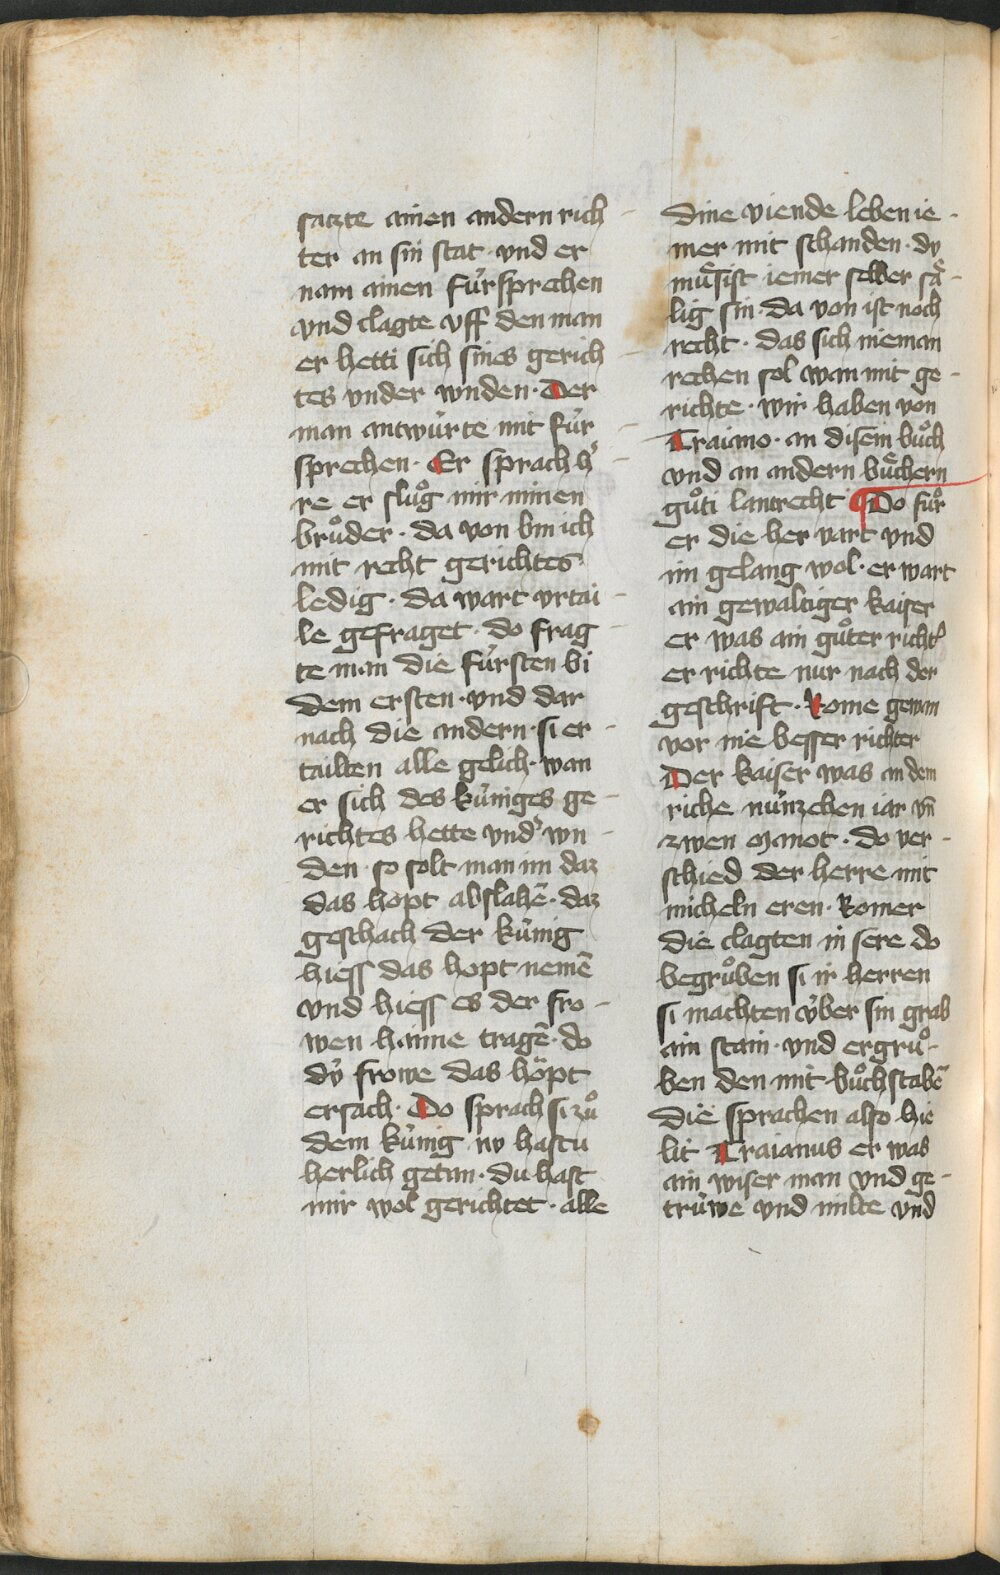 saczte ainen andern rich-
ter an sin stat · vnd er
nam ainen fúrsprechen
vnd clagte vff den man
er hetti sich sines gerich-
tes vnder wnden · Der
man antwúrte mit fúr-
sprechen · Er sprach h͛-
re er slůg mir minen
brůder · da von bin ich
mit recht gerichtes
ledig · da wart vrtai-
le gefraget · do frag-
te man die fúrsten bi
dem ersten · vnd dar
nach die andern · si er-
tailten alle gelich · wan
er sich des kúniges ge-
richtes hette vnd͛ wn-
den · so solt man im daz
das hopt abslahē · daz
geschach der kúnig
hiess das hopt nemē
vnd hiess es der fro-
wen hainne tragē · do
dú frowe das höpt
ersach · Do sprach si zů
dem kúnig nv hastu
herlich getan · du hast
mir wol gerichtet · alle
dine viende leben ie-
mer mit schanden · dv
můsist iemer selber sä-
lig sin · da von ist noch
recht · das sich nieman
rechen sol wan mit ge-
richte · wir haben von
Traiano · an disem bůch
vnd an andern bůchern
gůti lantrecht ¶ Do fůr
er die her vart vnd
im gelang wol · er wart
ain gewaltiger kaiser
er was ain gůter richt͛
er richte nur nach der
geschrift · Rome gewan
vor nie besser richter
Der kaiser was an dem
riche núnzehen iar vn̄
zwen manot · do ver-
schied der herre mit
micheln eren · Romer
die clagten in sere do
begrůben si ir herren
si machten úber sin grab
ain stain · vnd ergrů-
ben den mit bůchstabē
die sprachen also hie
lit Traianus er was
ain wiser man vnd ge-
trúwe vnd milte vnd